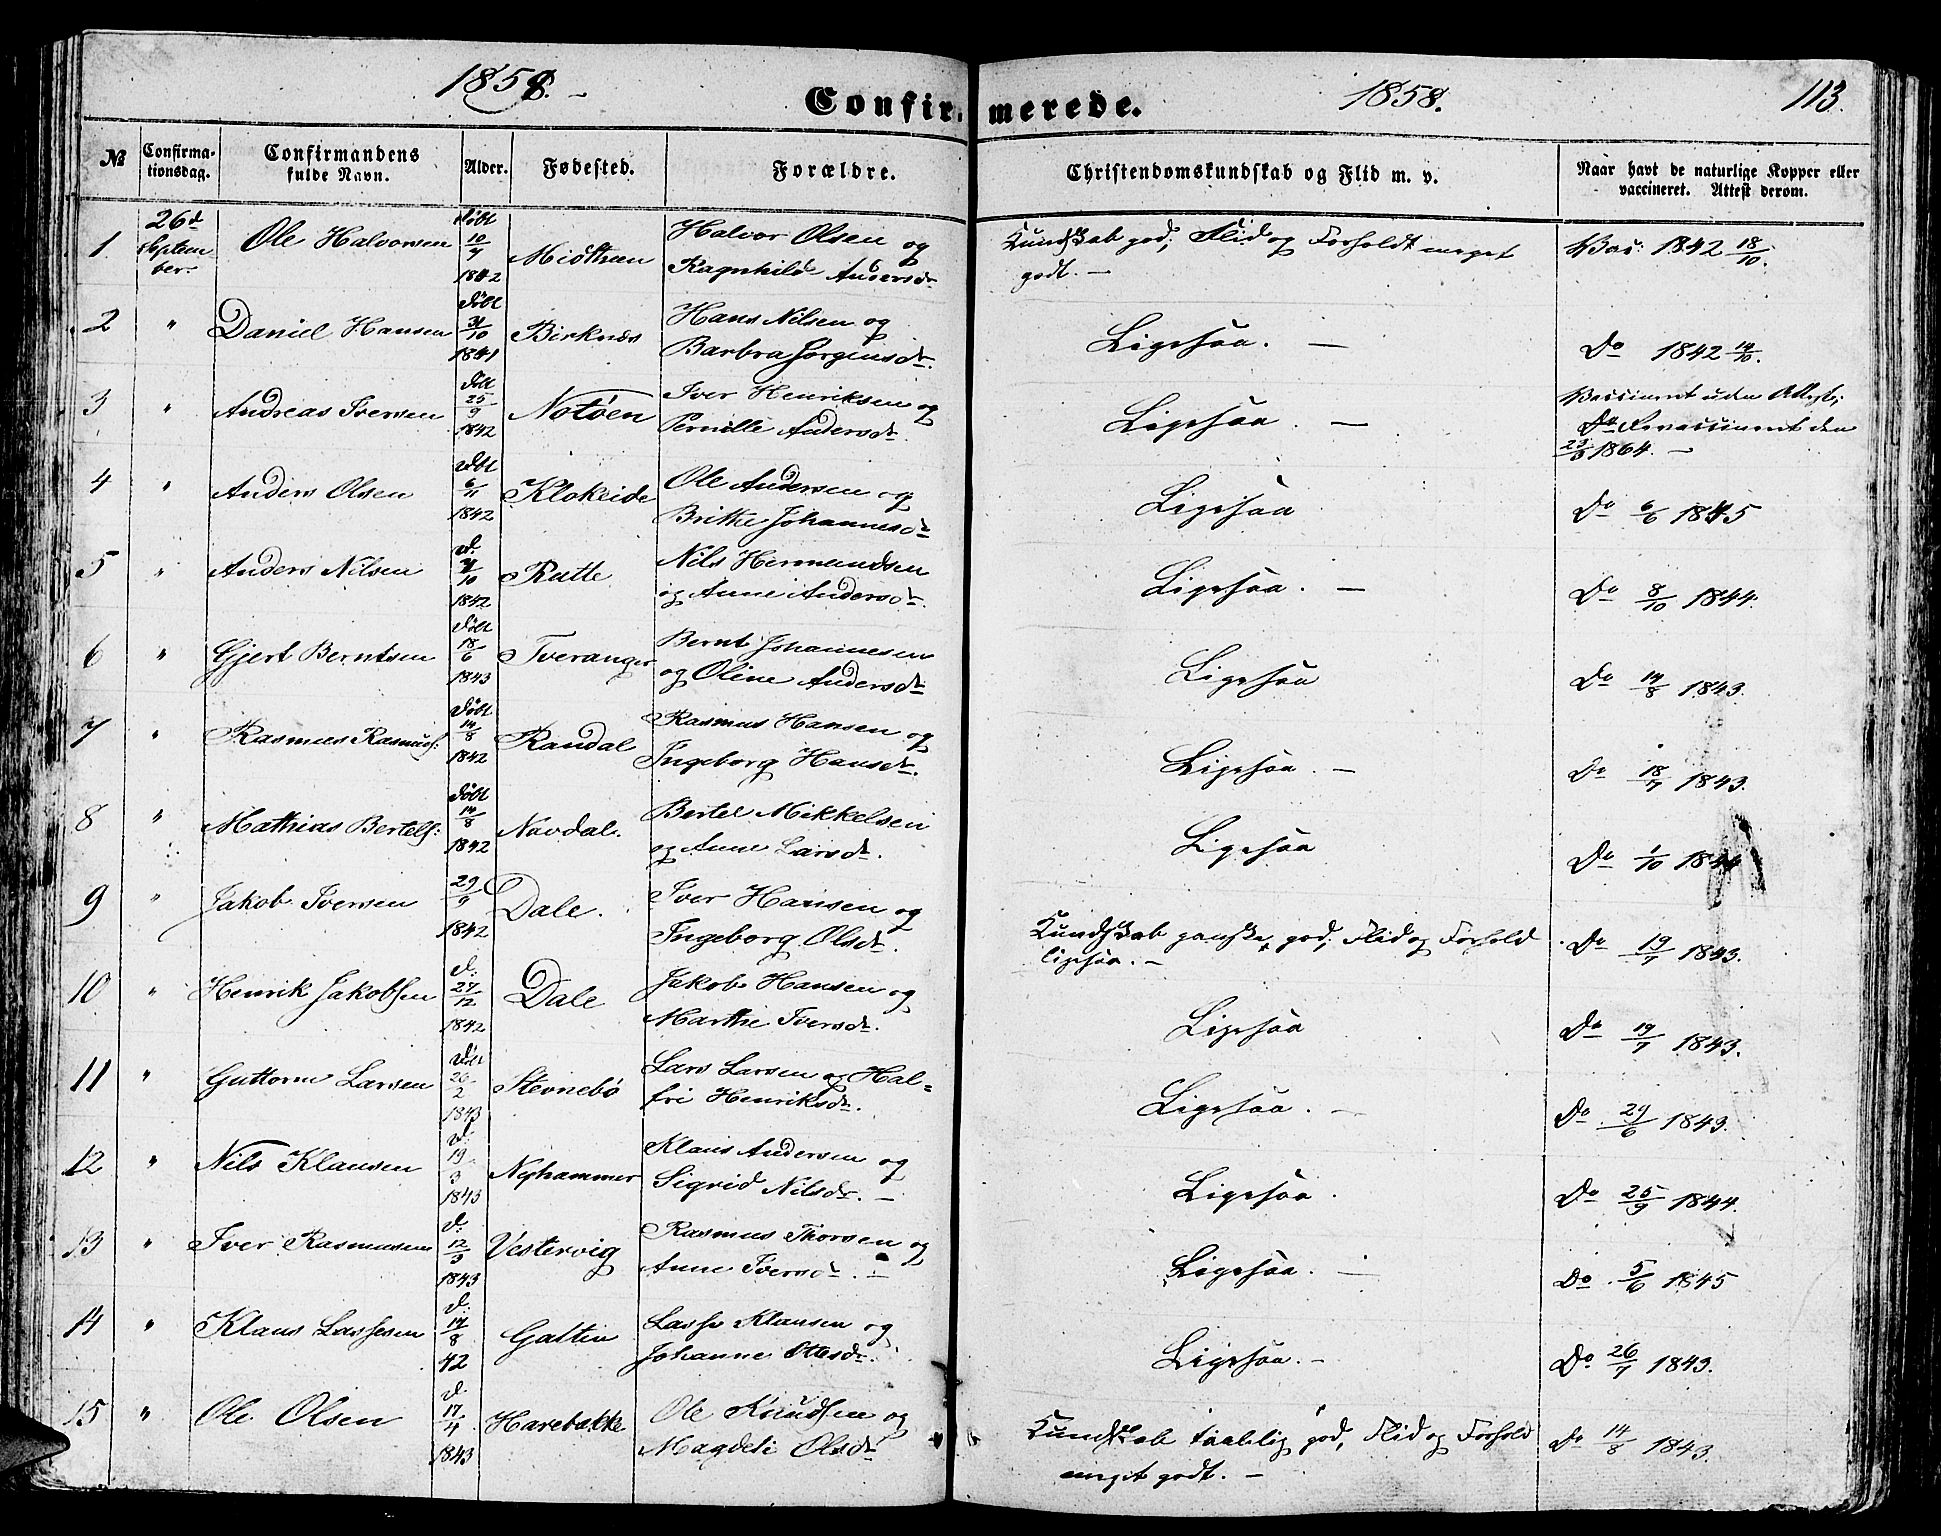 1858. 1858. 113.
Confirmerede.
№ Confirma-tionsdag. Confirmandens fulde Navn. Alder. Fødested. Forældre. Christendomskundskab og Flid m. v. Naar havt de naturlige Kopper eller vaccineret. Attest derom.
1. 26d Septem- Ole Halvorsen Døbt 10/7 Miøthun Halvor Olsen og Kundskab god; Flid og Forholdt meget Vac: 1842 18/10.
ber. 1842 Ragnhilde Andersdr godt. —
2 " Daniel Hansen Døbt 31/10 Birknæs Hans Nilsen og Ligesaa. — Do 1842 14/10.
1841 Barbra Jørgensdr.
3 " Andreas Iversen Døbt 25/9 Notøen Iver Henriksen og Ligesaa. — Vaccineret uden Attest;
1842 Pernille Andersdr. Do Revaccineret den
1864. —
4 " Anders Olsen Døbt 6/11 Klokeide Ole Andersen og Ligesaa Do 6/6 1845
1842 Brithe Johannesdr
5 " Anders Nilsen d. 10 Rutte Nils Hermundsen Ligesaa. — Do 8/10 1844.
1842 og Anne Andersdr.
6 " Gjert Berntsen Døbt 18/6 Tveranger Bernt Johannesen Ligesaa Do 14/8 1843.
1843 og Oline Andersdr
7 " Rasmus Rasmuss: Døbt 14/8 Randal Rasmus Hansen og Ligesaa. — Do 18/7 1843.
1842 Ingeborg Hansdr.
8 " Mathias Bertels: Døbt 14/8 Navdal. Bertel Mikkelsen Ligesaa Do 1/10 1844
1842 og Anne Larsdr.
9 " Jakob Iversen 29/9 Dale. Iver Hansen og Kundskab ganske god; Flid og Forhold Do 19/7 1843.
1842 Ingeborg Olsdr. ligesaa. —
10 " Henrik Jakobsen d: 27/12 Dale Jakob Hansen og Ligesaa Do 19/7 1843.
1842 Marthe Iversdr.
11 " Guttorm Larsen Døbt 26/2 Stevnebø Lars Larsen og Hal= Ligesaa. — Do 29/6 1843.
1843 fri Henriksdr.
12 " Nils Klausen d: 19/3 Nyhammer Klaus Andersen og Ligesaa. Do 25/9 1844.
1843 Sigrid Nilsdr. —
13 " Iver Rasmussen d: 12/3 Vestervig Rasmus Thorsen og Ligesaa. — Do 5/6 1845
1843 Anne Iversdr. —
14 " Klaus Lassesen d: 17/8 Galtin Lasse Klausen og Ligesaa. — Do 26/7 1843.
42 Johanne Olsdr.
15 " Ole Olsen d. 17/4 Harebakke Ole Knudsen og Kundskab taalelig god, Flid og Forhold Do 14/8 1843.
1843 Magdeli Olsdr meget godt. —